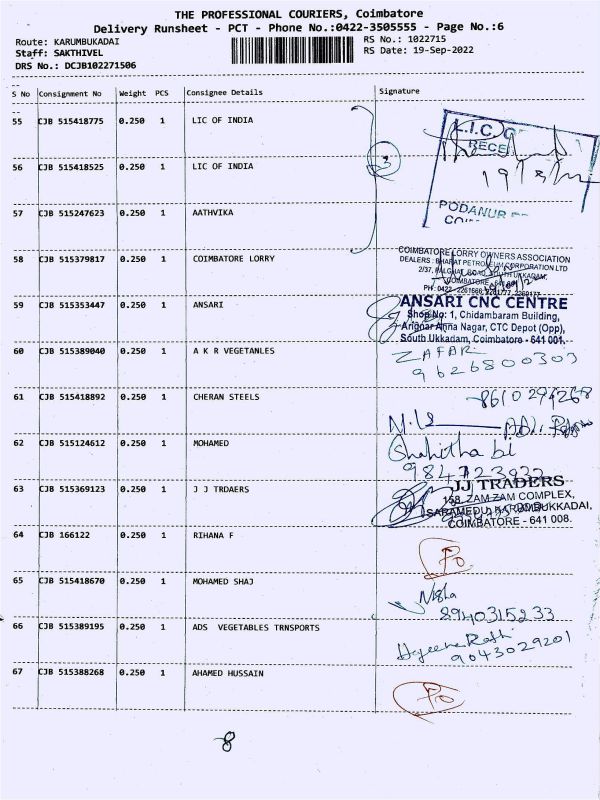 THE PROFESSIONAL COURIERS, Coimbatore
Delivery Runsheet - PCT - Phone No.:0422-3505555 - Page No.:6
Route: KARUMBUKADAI
RS No.: 1022715
Staff: SAKTHIVEL
RS Date: 19-Sep-2022
DRS No.: DCJB102271506
S No Consignment No Weight PCS Consignee Details Signature
55 CJB 515418775 0.250 1 LIC OF INDIA
L.I.C.
RECE
3
56 CJB 515418525 0.250 1 LIC OF INDIA
57 CJB 515247623 0.250 1 AATHVIKA
PODANUR
58 CJB 515379817 0.250 1 COIMBATORE LORRY
COIMBATORE LORRY OWNERS ASSOCIATION
DEALERS : BHARAT PETROLEUM CORPORATION LTD
2/37, PALGHAT ROAD, SOUTH UKKADAM,
COIMBATORE
PH : 0422
59 CJB 515353447 0.250 1 ANSARI
ANSARI CNC CENTRE
Shop No: 1, Chidambaram Building,
Arignar Anna Nagar, CTC Depot (Opp),
South Ukkadam, Coimbatore - 641 001.
60 CJB 515389040 0.250 1 A K R VEGETANLES
ZAFAR
9626800303
61 CJB 515418892 0.250 1 CHERAN STEELS
8610294268
62 CJB 515124612 0.250 1 MOHAMED
Shahitha bi
9847723932
63 CJB 515369123 0.250 1 J J TRDAERS
JJ TRADERS
158, ZAM ZAM COMPLEX,
SARAMEDU, KARUMBUKKADAI,
COIMBATORE - 641 008.
64 CJB 166122 0.250 1 RIHANA F
65 CJB 515418670 0.250 1 MOHAMED SHAJ
Nisha
8940315233
66 CJB 515389195 0.250 1 ADS VEGETABLES TRNSPORTS
9043029201
67 CJB 515388268 0.250 1 AHAMED HUSSAIN
8